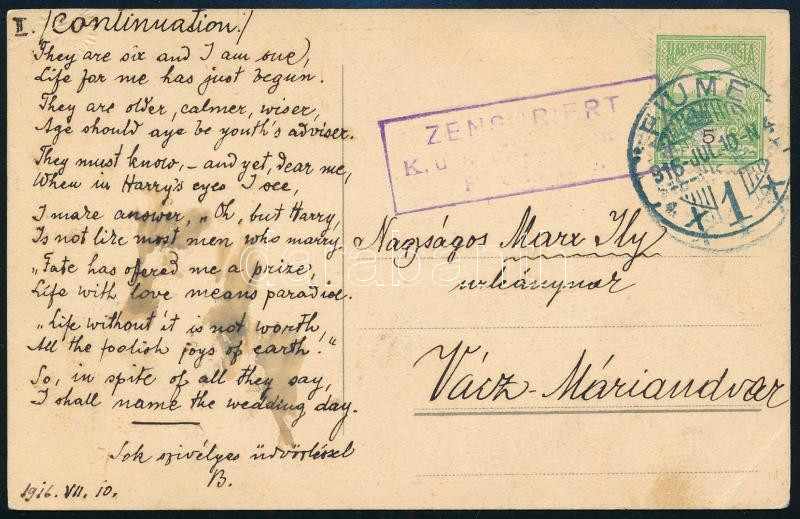 II. /Continuation/
They are six and I am one,
Life for me has just begun.
They are older, calmer, wiser,
Age should aye be youth's adviser.
They must know, – and yet, dear me,
When in Harry's eyes I see,
I make answer, „Oh, but Harry,
Is not like most men who marry.
„Fate has offered me a prize,
Life with love means paradise.
„Life without it is not worth,
All the foolish joys of earth."
So, in spite of all they say,
I shall name the wedding day.
Sok szivélyes üdvözléssel
B.
1916. VII. 10.
MAGYAR KIR. POSTA
5
ZENSURIERT
K. u. K.
FIUME
916 JUL 10
1
Nagságos Marx Ily
urleánynar
Vácz-Máriaudvar
darabanth